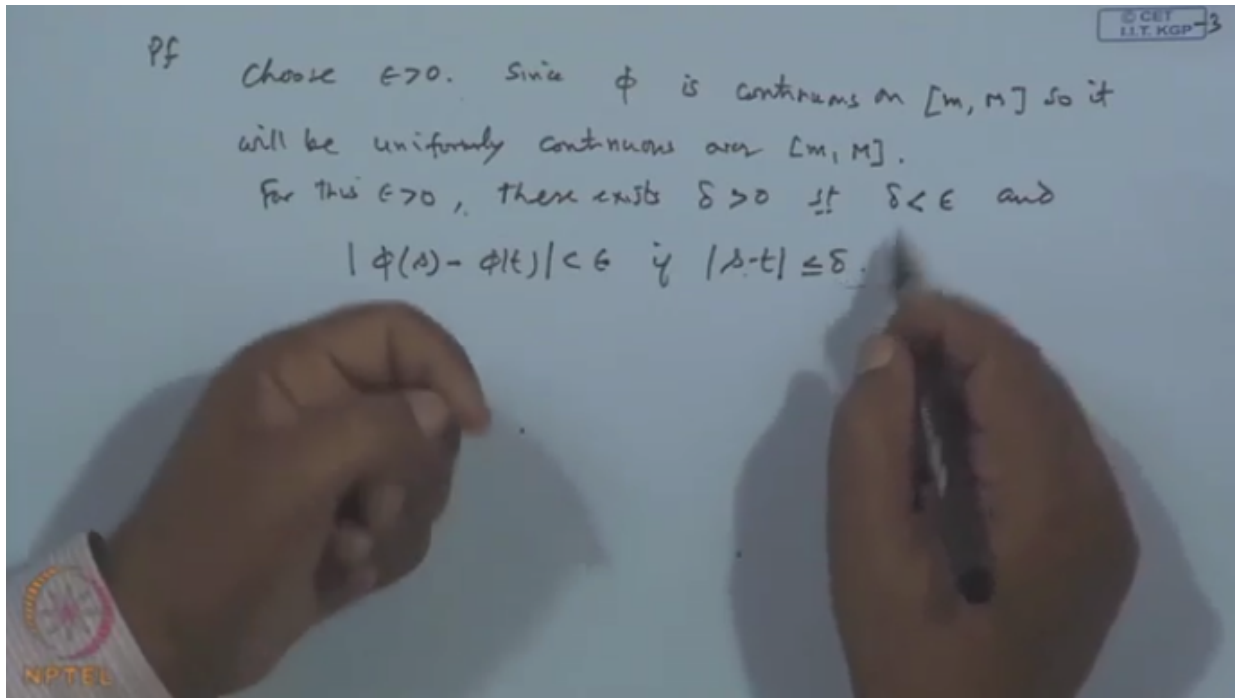 © CET
I.I.T. KGP -3
Pf
Choose ϵ>0. Since ϕ is continuous on [m, M] so it
will be uniformly continuous over [m, M].
For this ϵ>0, there exists δ>0 st δ<ϵ and
|ϕ(s) - ϕ(t)| < ϵ if |s-t| ≤ δ.
NPTEL